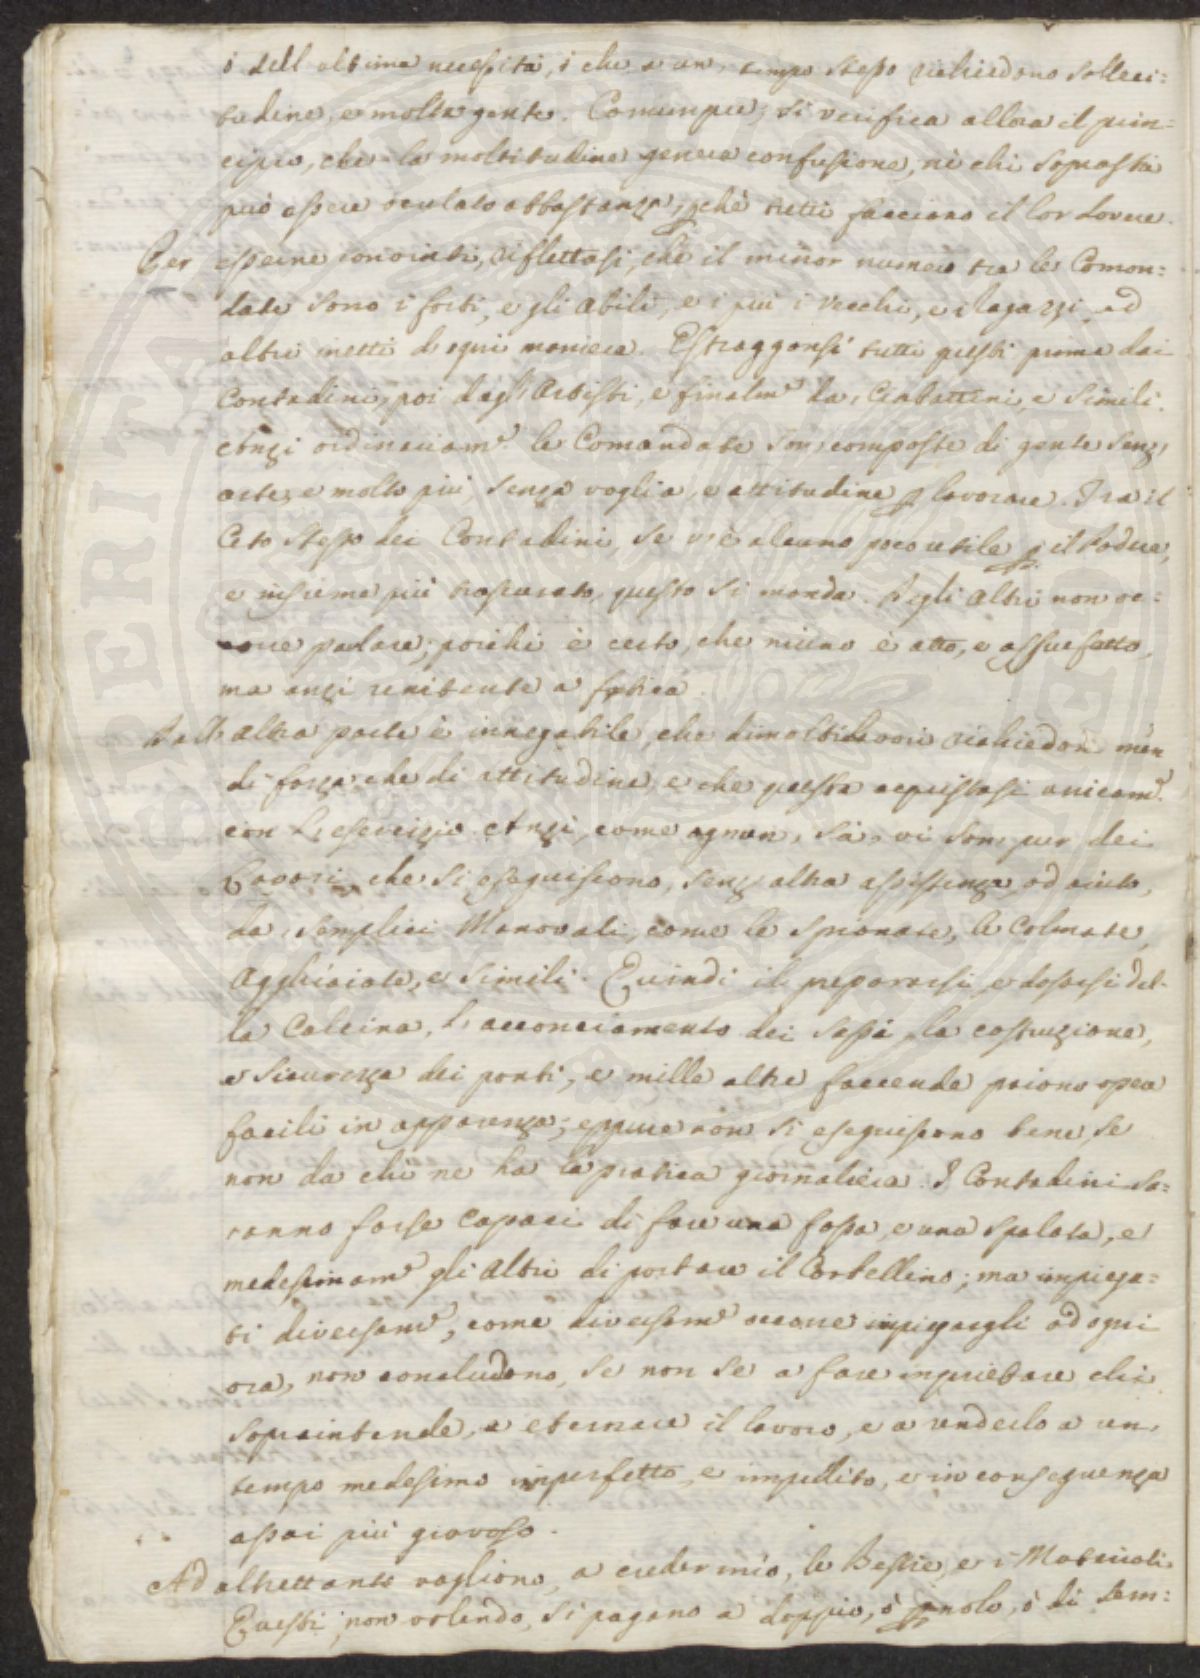 ò dell'ultima necessità, ò che a un, tempo stesso richiedono solleci=
tudine, e molta gente. Comunque, si verifica allora il prin=
cipio, che la moltitudine genera confusione, nè chi soprasta
può essere oculato abbastanza, pchè tutti facciano il lor dovere.
Per esserne convinti, riflettasi, che il minor numero tra le Coman=
date sono i forti, e gli abili, e i più i Vecchi, e Ragazzi, ad
altri inetti d'ogni maniera. Estraggonsi tutti questi prima dai
Contadini, poi dagli Artisti, e finalm.e da, Ciabattini, e simili.
Anzi ordinariam.e le Comandate son, composte di gente senz,
arte, e molto più, senza voglia, e attitudine p lavorare. Tra il
Ceto stesso dei Contadini, se v'è alcuno poco utile p il Podere,
e insieme più trascurato, questo si manda. Degli altri non oc=
corre parlare; poichè è certo, che niuno è atto, e assuefatto,
ma anzi renitente a fatica.
Dall, altra parte è innegabile, che dimolti lavori richiedon men
di forza, che di attitudine, e che questa acquistasi unicam.e
con l, esercizio. Anzi, come ognun, sà, vi son, pur dei
Lavori, che si eseguiscono, senz, altra assistenza, od aiuto,
da, semplici Manovali, come le Spianate, le Colmate,
Agghiaiate, e simili. Quindi il prepararsi, e dosarsi del=
la Calcina, l, acconciamento dei Sassi, la costruzione,
e sicurezza dei ponti, e mille altre faccende paiono opera
facili in apparenza; eppure non si eseguiscono bene, se
non da chi ne ha la pratica giornaliera. I Contadini sa=
ranno forse capaci di fare una fossa, e una spalata, e
medesimam.e gli altri di portare il Corbellino; ma impiega=
ti diversam.e, come diversam.e occorre impiegargli ad ogni
ora, non concludono, se non se a fare inquietare chi
sopraintende, a eternare il lavoro, e a renderlo a un,
tempo medesimo imperfetto, e impedito, e in conseguenza
assai più gravoso.
Ad altrettanto vagliono, a creder mio, le Bestie, e i Materiali.
Questi, non volendo, si pagano a doppio, ò p nolo, ò di tem=